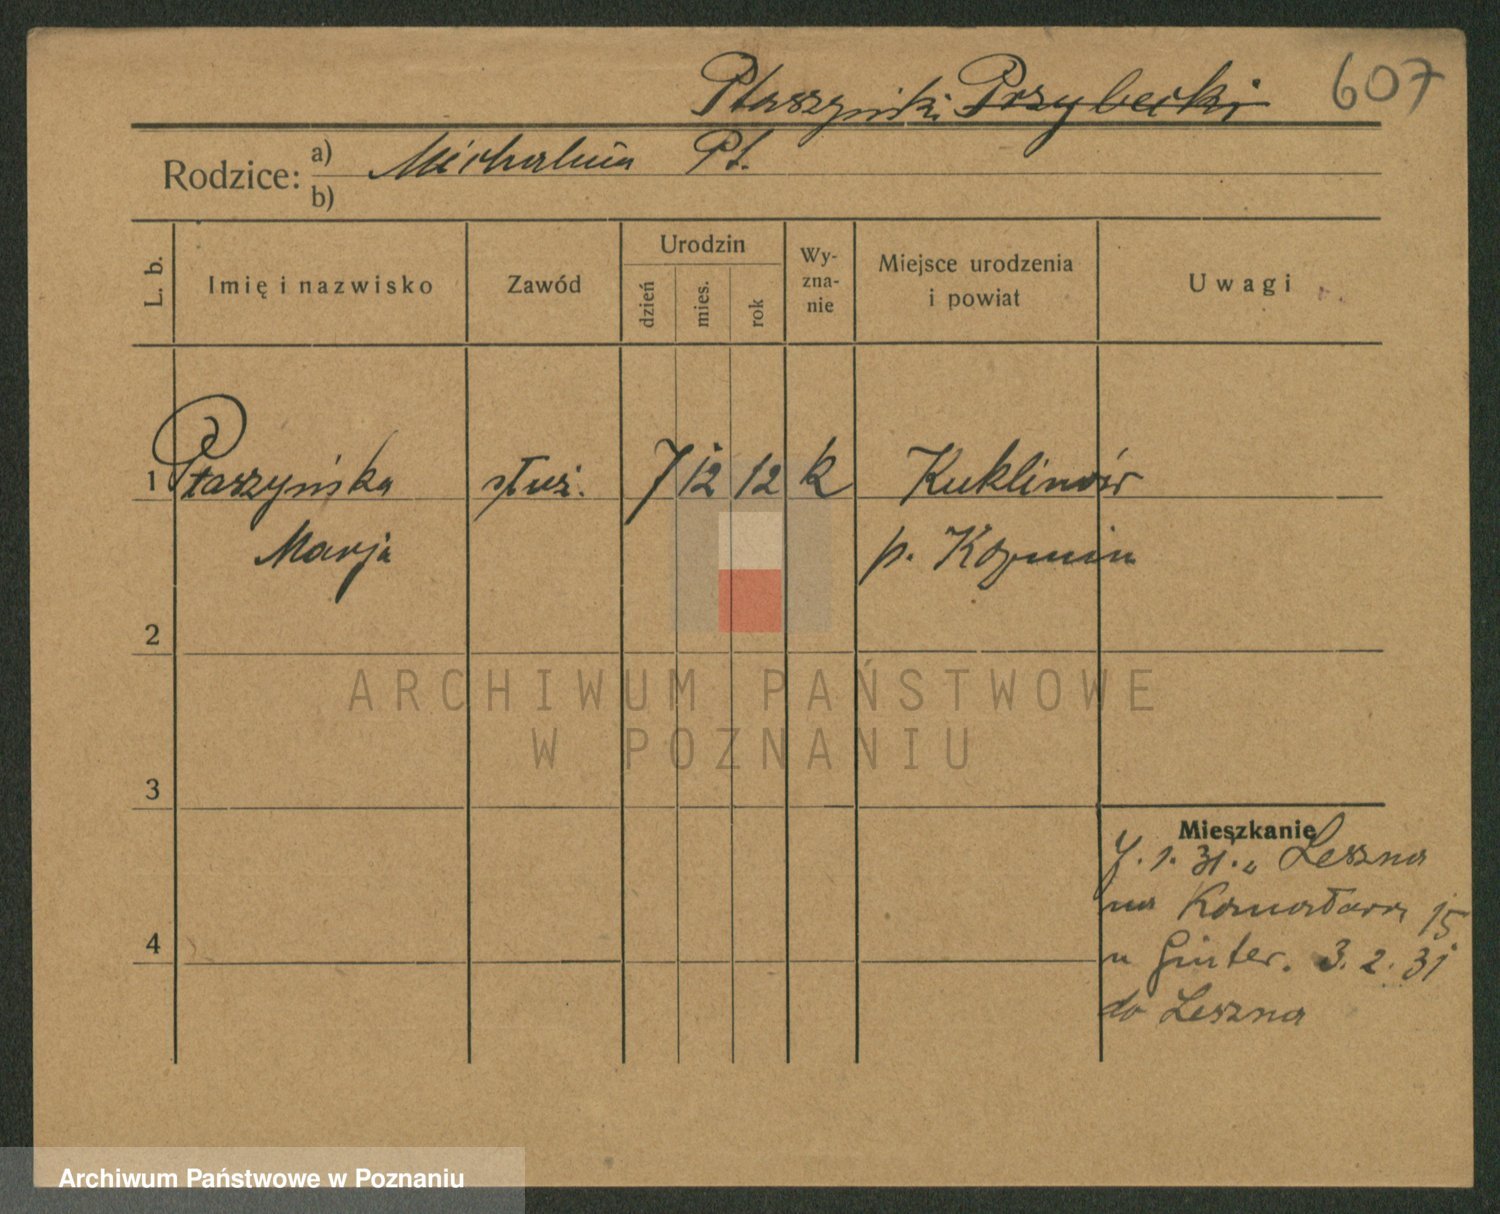 607
Ptaszyński Przybecki
Rodzice: a) Michalina Pt.
b)
L. b.
Imię i nazwisko
Zawód
Urodzin
dzień
mies.
rok
Wy-
zna-
nie
Miejsce urodzenia
i powiat
Uwagi
1 Ptaszyńska służ. 7 12 12 k Kuklinów
Marja p. Koźmin
2
ARCHIWUM PAŃSTWOWE
W POZNANIU
3
Mieszkanie
1. 31. Leszna
na 15
u Ginter. 3. 2. 31
4
do Leszna
Archiwum Państwowe w Poznaniu